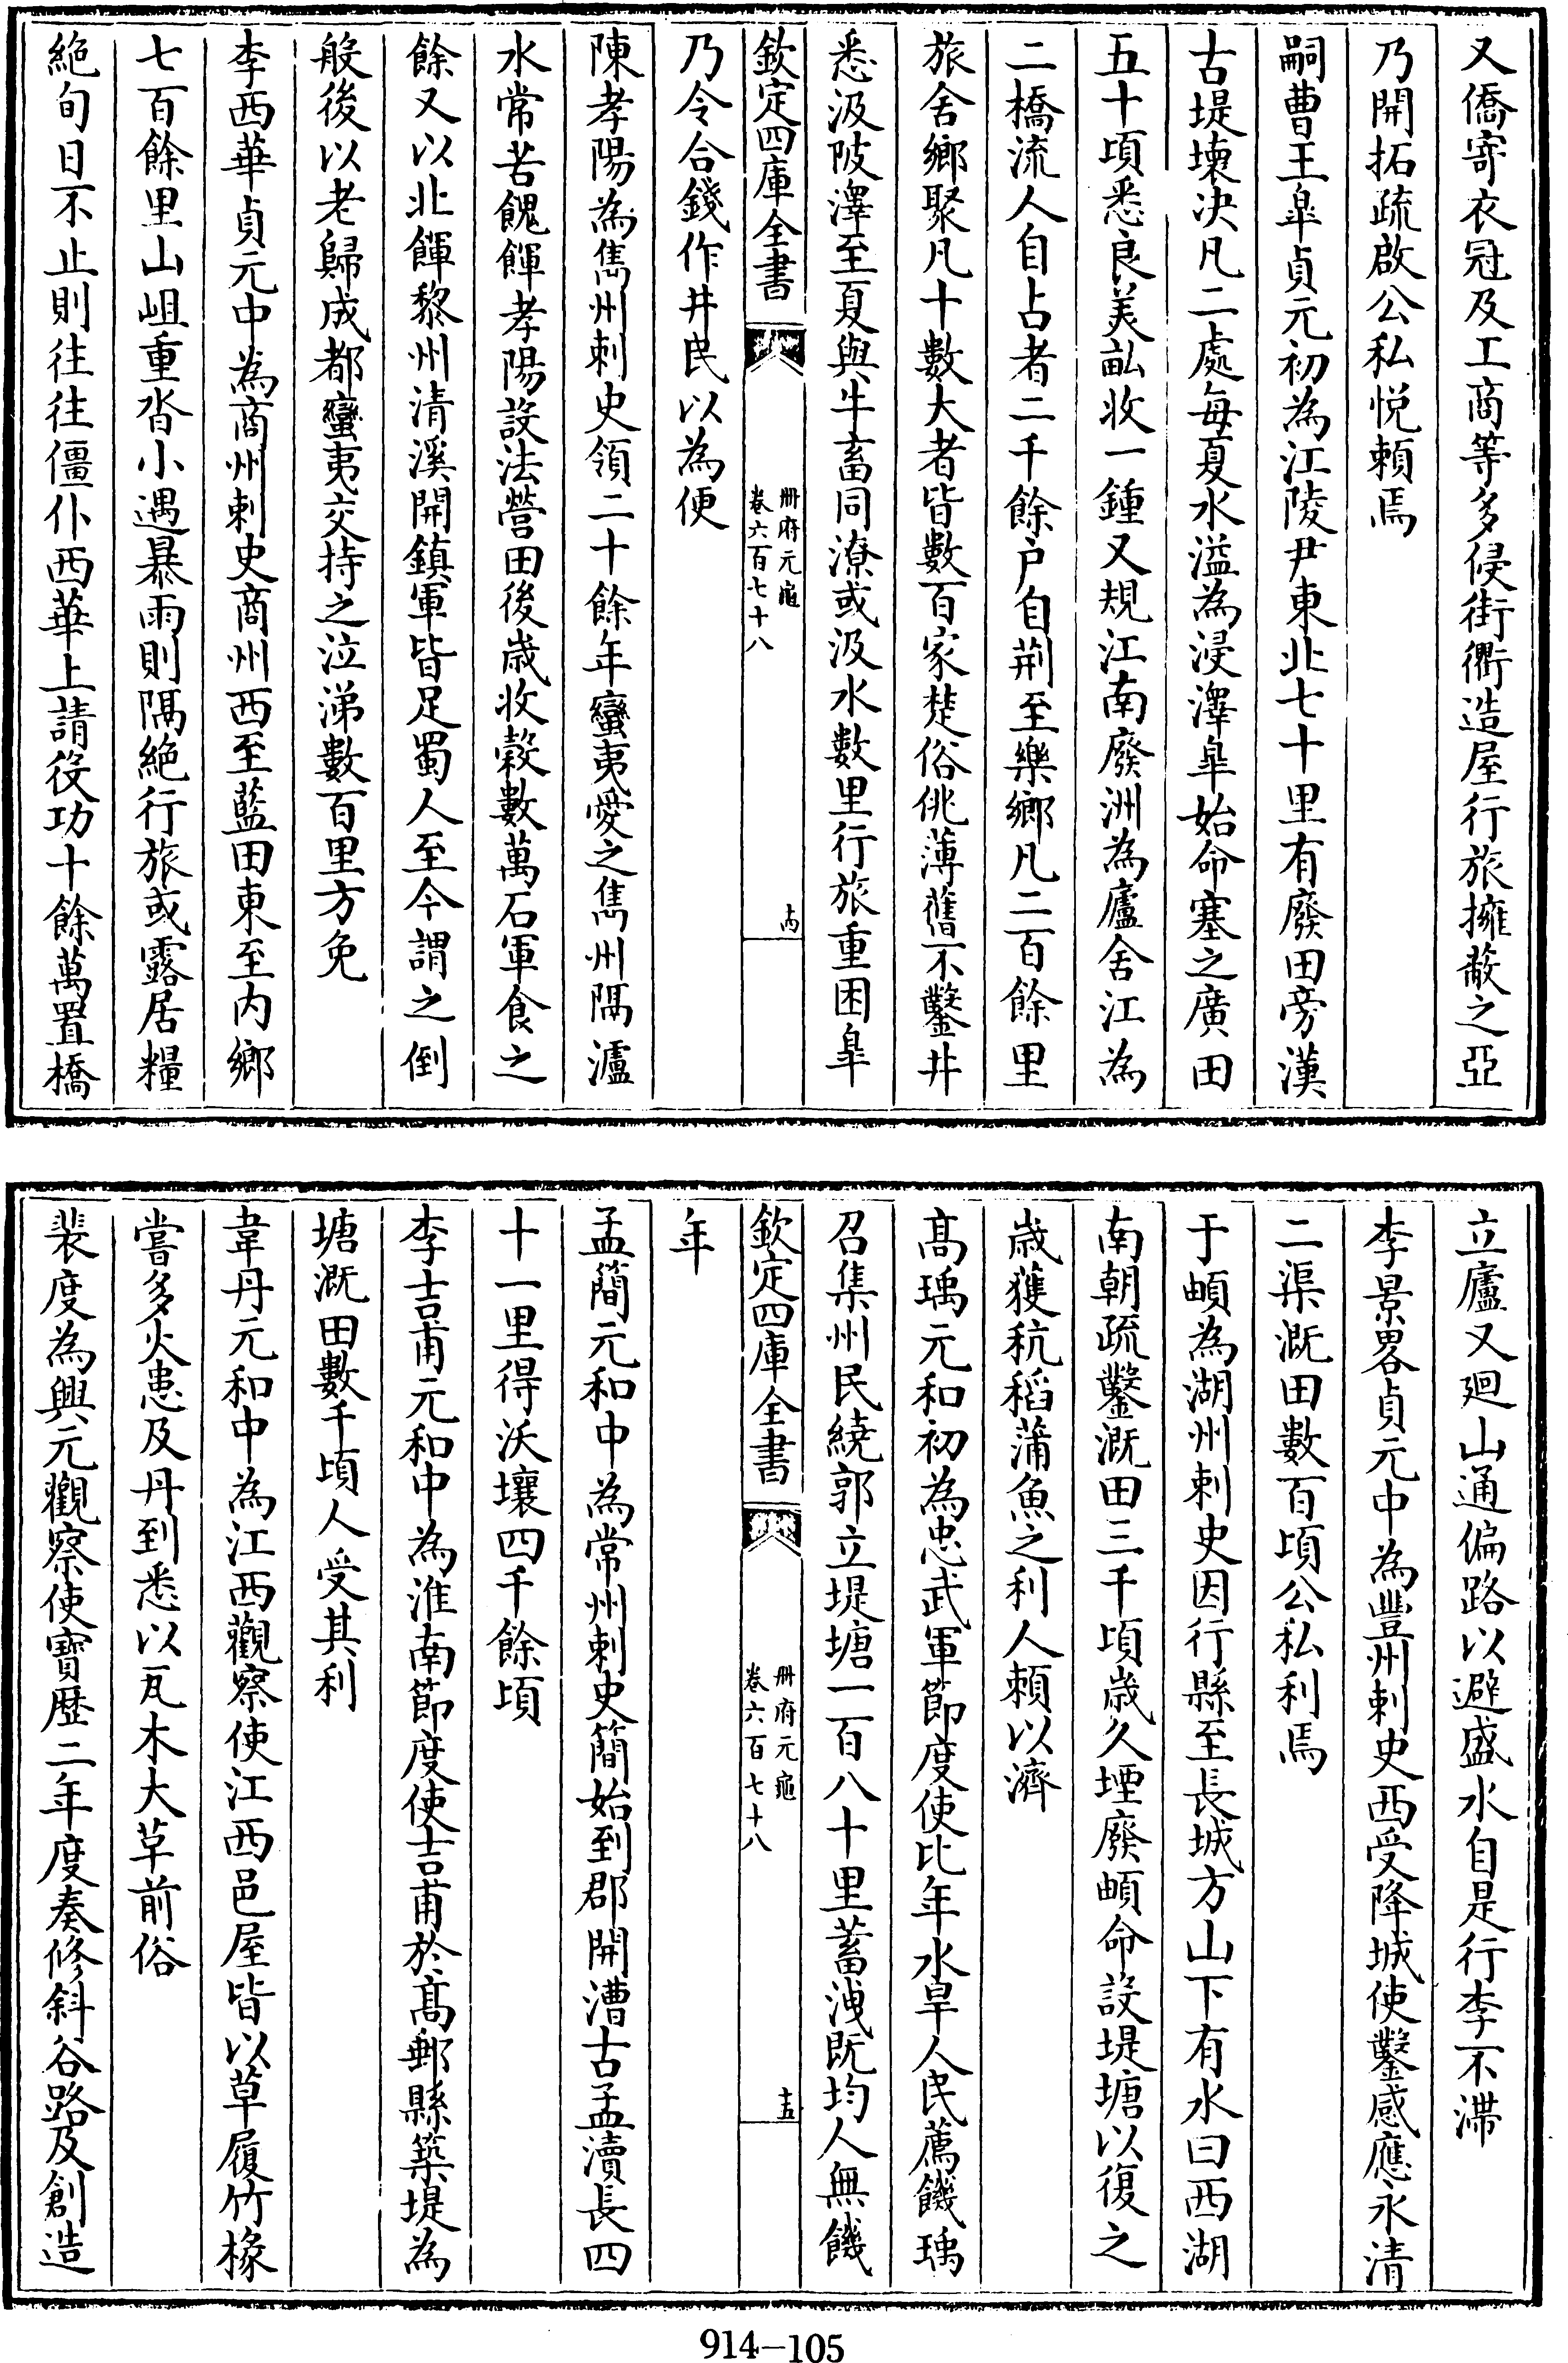 又僑寄衣冠及工商等多侵街衢造屋行旅擁蔽之亞
乃開拓疏啟公私悅賴焉
嗣曹王臯貞元初為江陵尹東北七十里有廢田旁漢
古堤壊決凡二處每夏水溢為浸澤臯始命塞之廣田
五十頃悉良美畆收一鍾又規江南廢洲為廬舍江為
二橋流人自占者二千餘户自荆至樂鄉凡二百餘里
旅舍鄉聚凡十數大者皆數百家楚俗佻薄舊不鑿井
悉汲陂澤至夏與牛畜同潦或汲水數里行旅重困臯
欽定四庫全書
冊府元龜
卷六百七十八
十四
乃令合錢作井民以為便
陳孝陽為雋州刺史領二十餘年蠻夷愛之雋州隔瀘
水常苦餽餫孝陽設法營田後嵗收榖數萬石軍食之
餘又以北餫黎州清溪開鎮軍皆足蜀人至今謂之倒
般後以老歸成都蠻夷交持之泣涕數百里方免
李西華貞元中為商州刺史商州西至藍田東至内鄉
七百餘里山岨重沓小遇暴雨則隔絶行旅或露居糧
絶旬日不止則往往僵仆西華上請役功十餘萬置橋
立廬又廻山通偏路以避盛水自是行李不滯
李景畧貞元中為豐州刺史西受降城使鑿感應永清
二渠溉田數百頃公私利焉
于頔為湖州刺史因行縣至長城方山下有水曰西湖
南朝疏鑿溉田三千頃歳久堙廢頔命設堤塘以復之
歳獲秔稻蒲魚之利人頼以濟
髙瑀元和初為忠武軍節度使比年水旱人民薦饑瑀
召集州民繞郭立堤塘一百八十里蓄洩既均人無饑
欽定四庫全書
冊府元龜
卷六百七十八
十五
年
孟簡元和中為常州刺史簡始到郡開漕古孟瀆長四
十一里得沃壤四千餘頃
李吉甫元和中為淮南節度使吉甫於髙郵縣築堤為
塘溉田數千頃人受其利
韋丹元和中為江西觀察使江西邑屋皆以草履竹椽
嘗多火患及丹到悉以瓦木大草前俗
裴度為興元觀察使寶歷二年度奏修斜谷路及創造
914-105